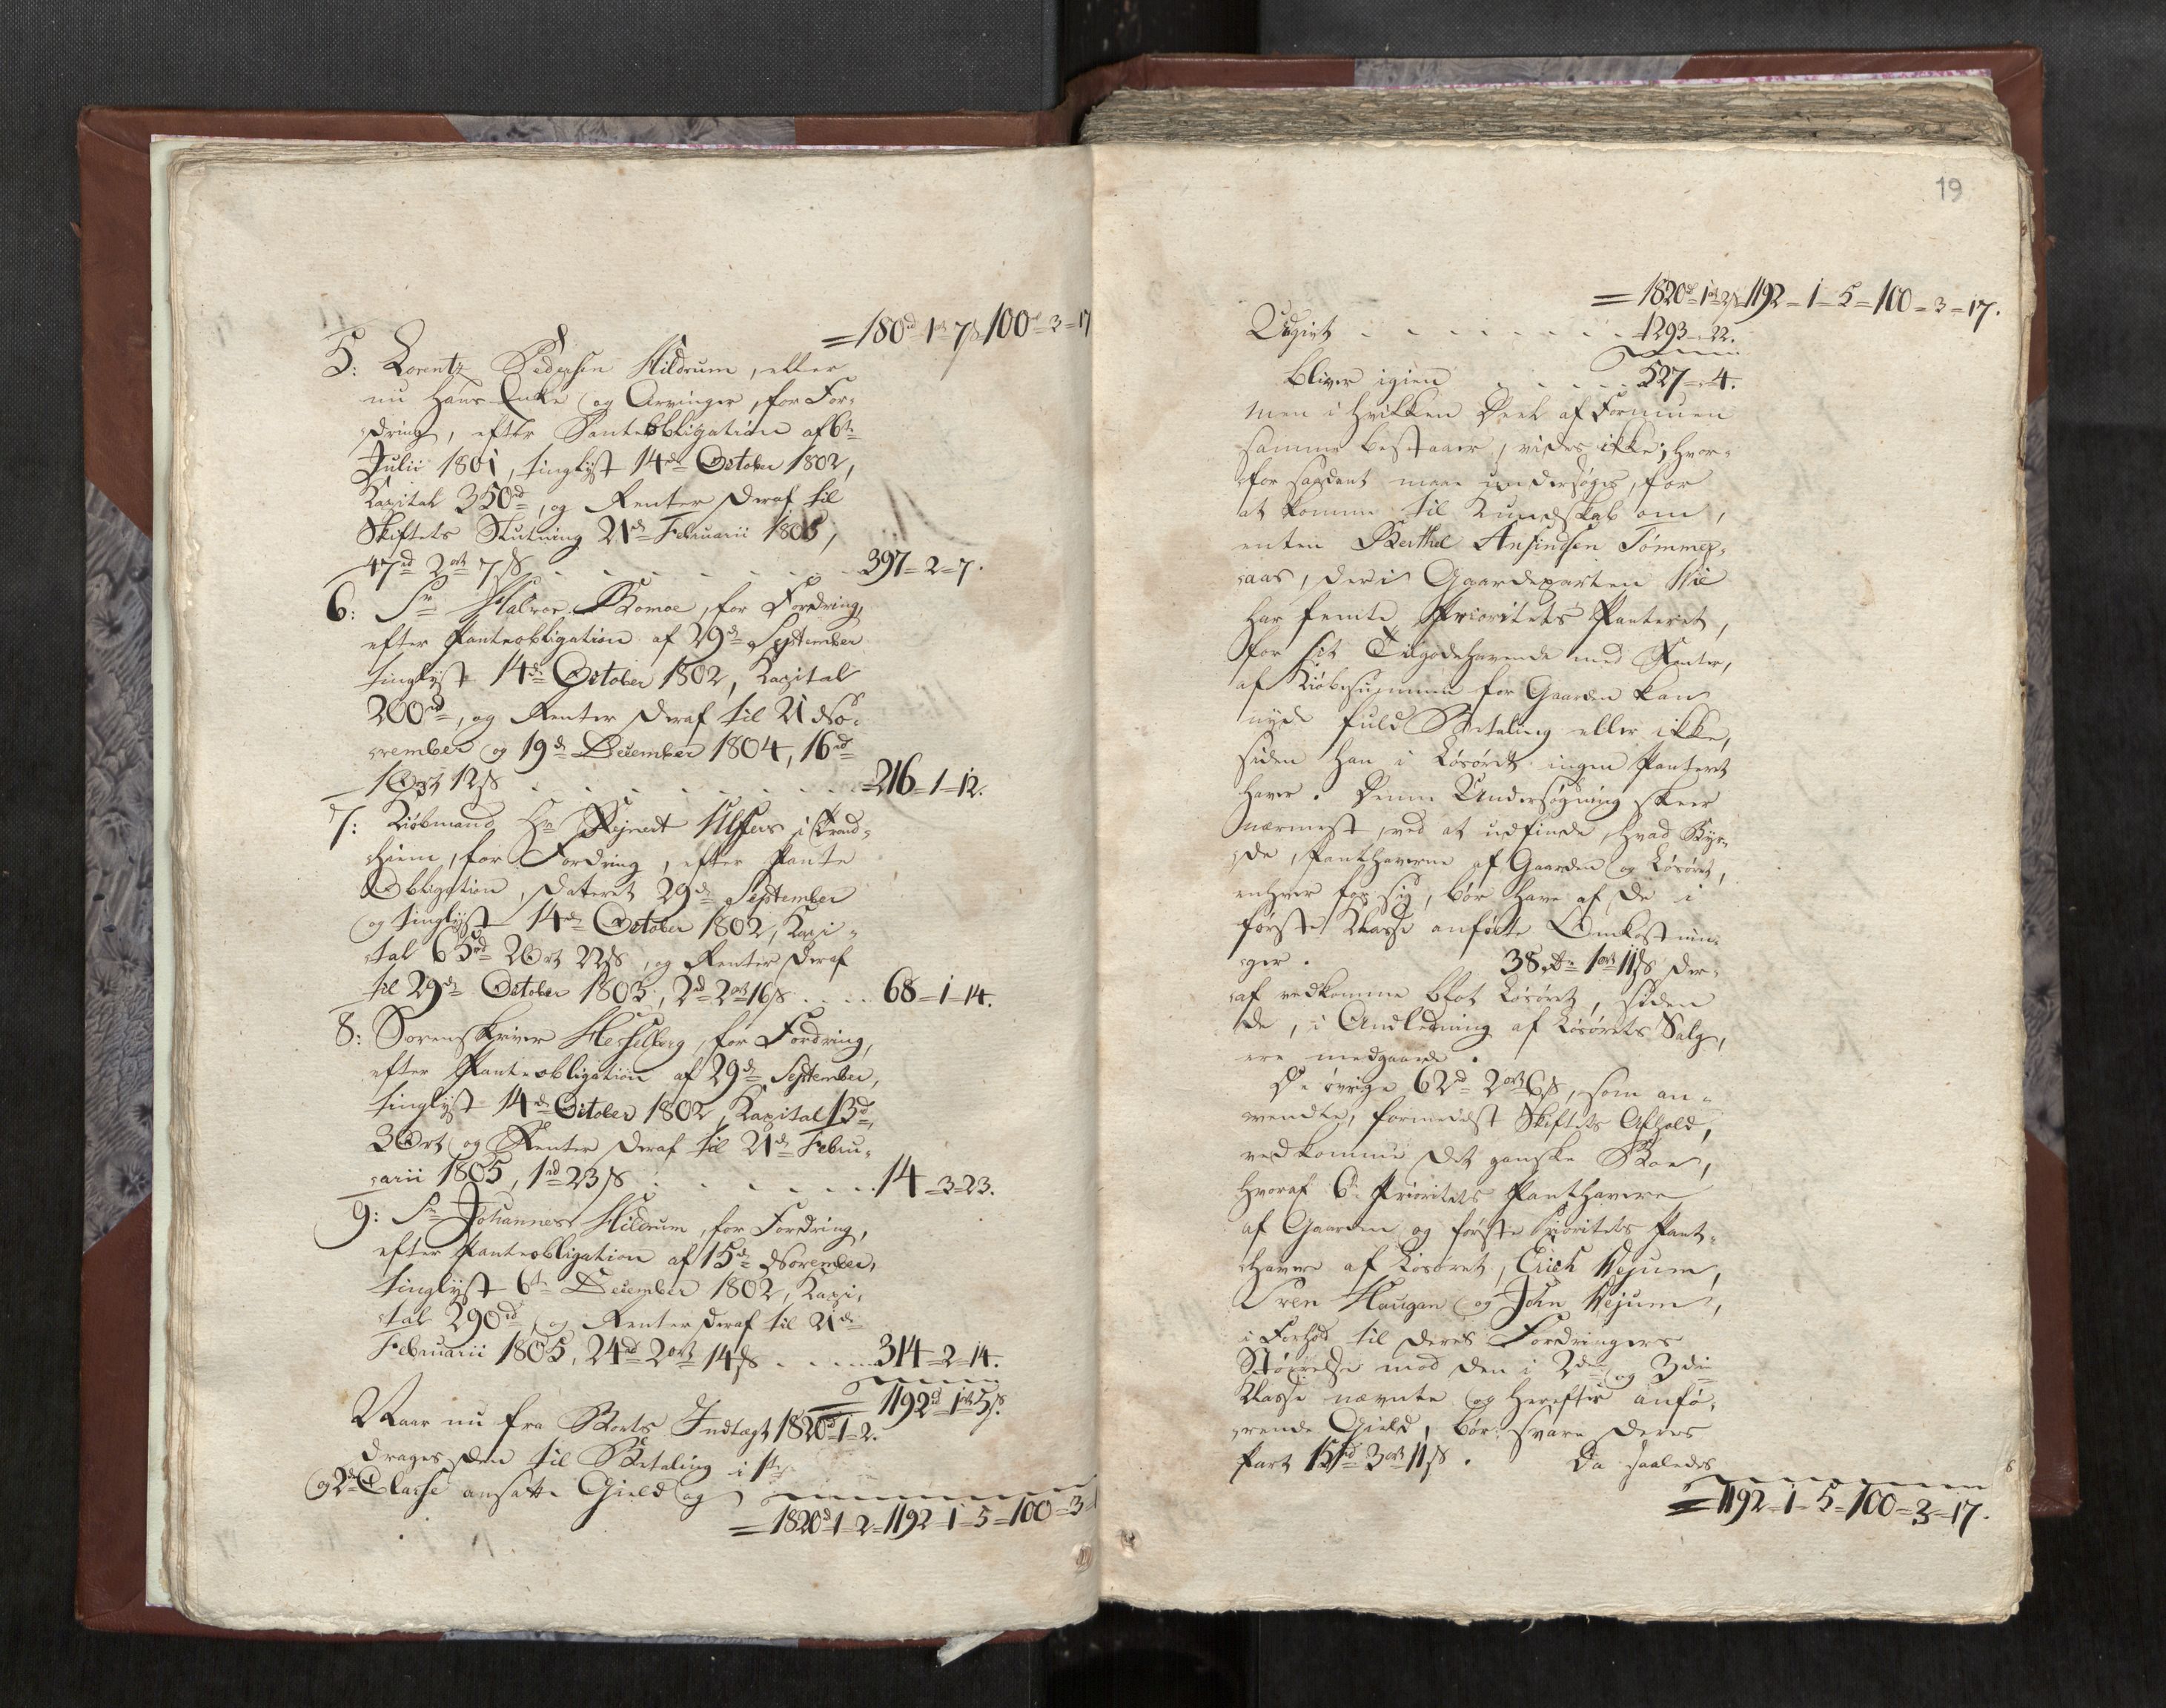 = 180rd 1ort 7s 100d = 3 = 17
5: Lorentz Pedersen Hildrum, eller
nu hans Enke og Arvinger, for For-
dring, efter Panteobligation af 6te
Julii 1801, tinglyst 14de October 1802,
Kapital 350rd, og Renter deraf til
Skiftets Slutning 21de Februarii 1805,
47rd 2ort 7s . . . . . . . 397 = 2 = 7.
6: Sr Halvor Romoe, for Fordring,
efter Panteobligation af 29de September
tinglyst 14de October 1802, Kapital
200rd, og Renter deraf til 21 No-
vember og 19de December 1804, 16rd
1 Ort 12s . . . . . . . = 216 = 1 = 12.
7: Kiøbmand Hr Rejnert Ulfers i Trond-
hiem, for Fordring, efter Pante
Obligation, dateret 29de September
og tinglyst 14de October 1802, Kapi-
tal 65rd 2 Ort 22s, og Renter deraf
til 29de October 1803, 2rd 2ort 16s . . . . 68 = 1 = 14.
8: Sorenskriver Hesselberg, for Fordring,
efter Panteobligation af 29de September,
tinglyst 14de October 1802, Kapital 13rd,
3 Ort og Renter deraf til 21de Febru-
arii 1805, 1rd 23s . . . . . . . 14 = 3 = 23.
9: Sr Johannes Hildrum, for Fordring,
efter Panteobligation af 15de November,
tinglyst 6te December 1802, Kapi-
tal 290rd, og Renter deraf til 21de
Februarii 1805, 24rd 2ort 14s . . . . . 314 = 2 = 14.
= 1192d 1ort 5s.
Naar nu fra Boets Indtægt 1820rd 1 = 2.
drages den til Betaling i 1te
og 2de Classe ansatte Gield og
= 1820rd 1 = 2 = 1192 = 1 = 5 = 100 = 3
19
= 1820rd 1ort 2s 1192 = 1 = 5 = 100 = 3 = 17.
Udgivt . . . . . . . . 1293 = 22.
bliver igien . . . . . 527 = 4.
men i hvilken Deel af Formuen
samme bestaaer, vides ikke; hvor-
for saadant maae undersøges, for
at komme til Kundskab om,
enten Berthel Ansindsen Tømmer-
aas, der i Gaardeparten
har femte Prioritets Panteret,
for sit Tilgodehavende med Renter,
af Kiøbesummen for Gaarden kan
nyde fuld Betaling eller ikke,
siden han i Løsøret ingen Panteret
haver. Denne Undersøgning skeer
nærmest, ved at udfinde, hvad Byr-
de, Panthaverne af Gaarden og Løsøret,
enhver for sig, bør have af de i
første Klasse anførte Omkostnin-
ger. 38 1ort 11s der-
af vedkomme blot Løsøret, siden
de, i Andledning af Løsørets Salg,
ere medgaaede.
De øvrige 62rd 2ort 6s, som an-
vendte, formedelst Skiftets Afhold,
vedkomme det ganske Boe,
hvoraf 6te Prioritets Panthavere
af Gaarden og første Prioritets Pant-
havere af Løsøret, Erich Vejum,
Sven Haugan og John Vejum,
i Forhold til deres Fordringers
Størrelse mod den i 2den og 3die
Klasse nævnte og herefter anfø-
rende Gield, bør svare deres
Part 15rd 3ort 11s. Da saaledes
= 1192 = 1 = 5 = 100 = 3 = 17.